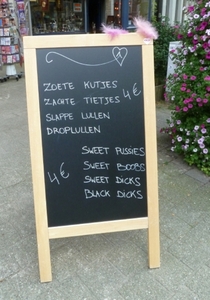 ZOETE KUTJES
ZACHTE TIETJES 4€
SLAPPE LULLEN
DROPLULLEN
SWEET PUSSIES
SWEET BOOBS
4€ SWEET DICKS
BLACK DICKS